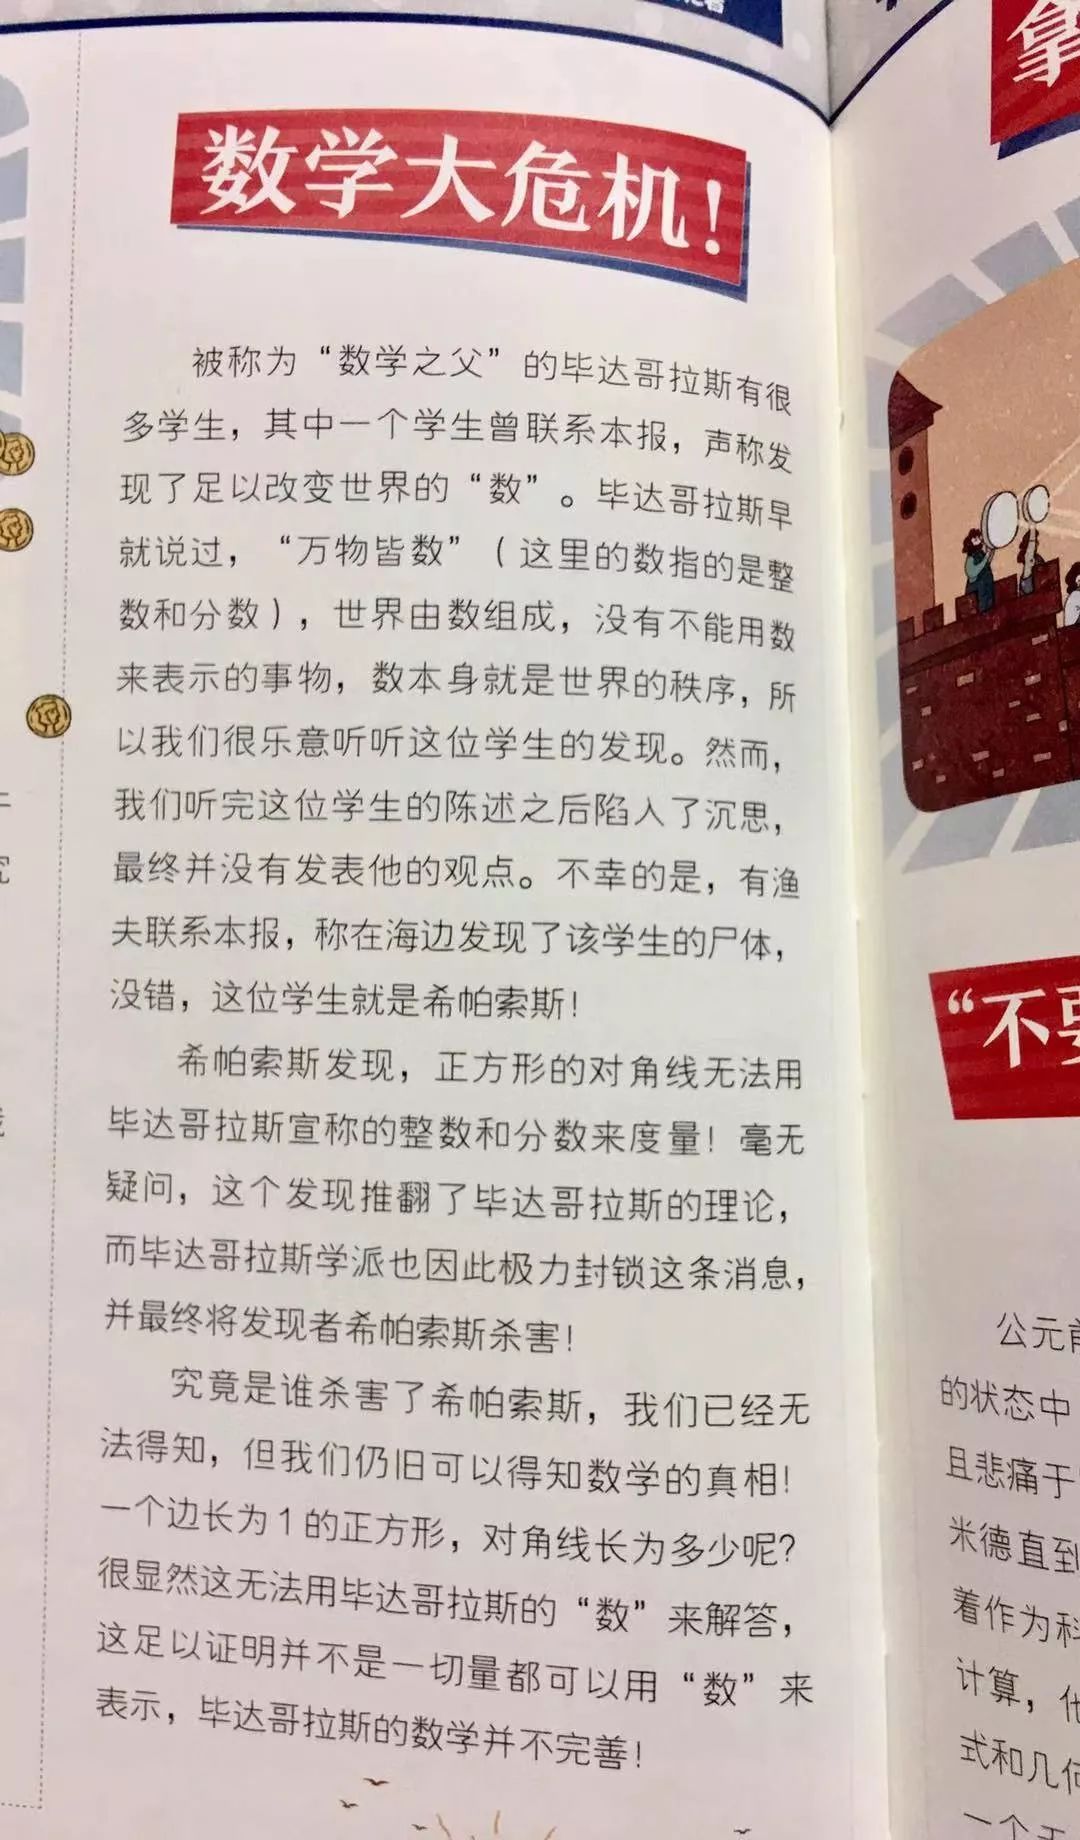 数学大危机！
被称为“数学之父”的毕达哥拉斯有很
多学生，其中一个学生曾联系本报，声称发
现了足以改变世界的“数”。毕达哥拉斯早
就说过，“万物皆数”（这里的数指的是整
数和分数），世界由数组成，没有不能用数
来表示的事物，数本身就是世界的秩序，所
以我们很乐意听听这位学生的发现。然而，
我们听完这位学生的陈述之后陷入了沉思，
最终并没有发表他的观点。不幸的是，有渔
夫联系本报，称在海边发现了该学生的尸体，
没错，这位学生就是希帕索斯！
希帕索斯发现，正方形的对角线无法用
毕达哥拉斯宣称的整数和分数来度量！毫无
疑问，这个发现推翻了毕达哥拉斯的理论，
而毕达哥拉斯学派也因此极力封锁这条消息，
并最终将发现者希帕索斯杀害！
究竟是谁杀害了希帕索斯，我们已经无
法得知，但我们仍旧可以得知数学的真相！
一个边长为1的正方形，对角线长为多少呢？
很显然这无法用毕达哥拉斯的“数”来解答，
这足以证明并不是一切量都可以用“数”来
表示，毕达哥拉斯的数学并不完善！
拿
“不要
公元前
的状态中
且悲痛于
米德直到
着作为科
计算，他
式和几何
一个天